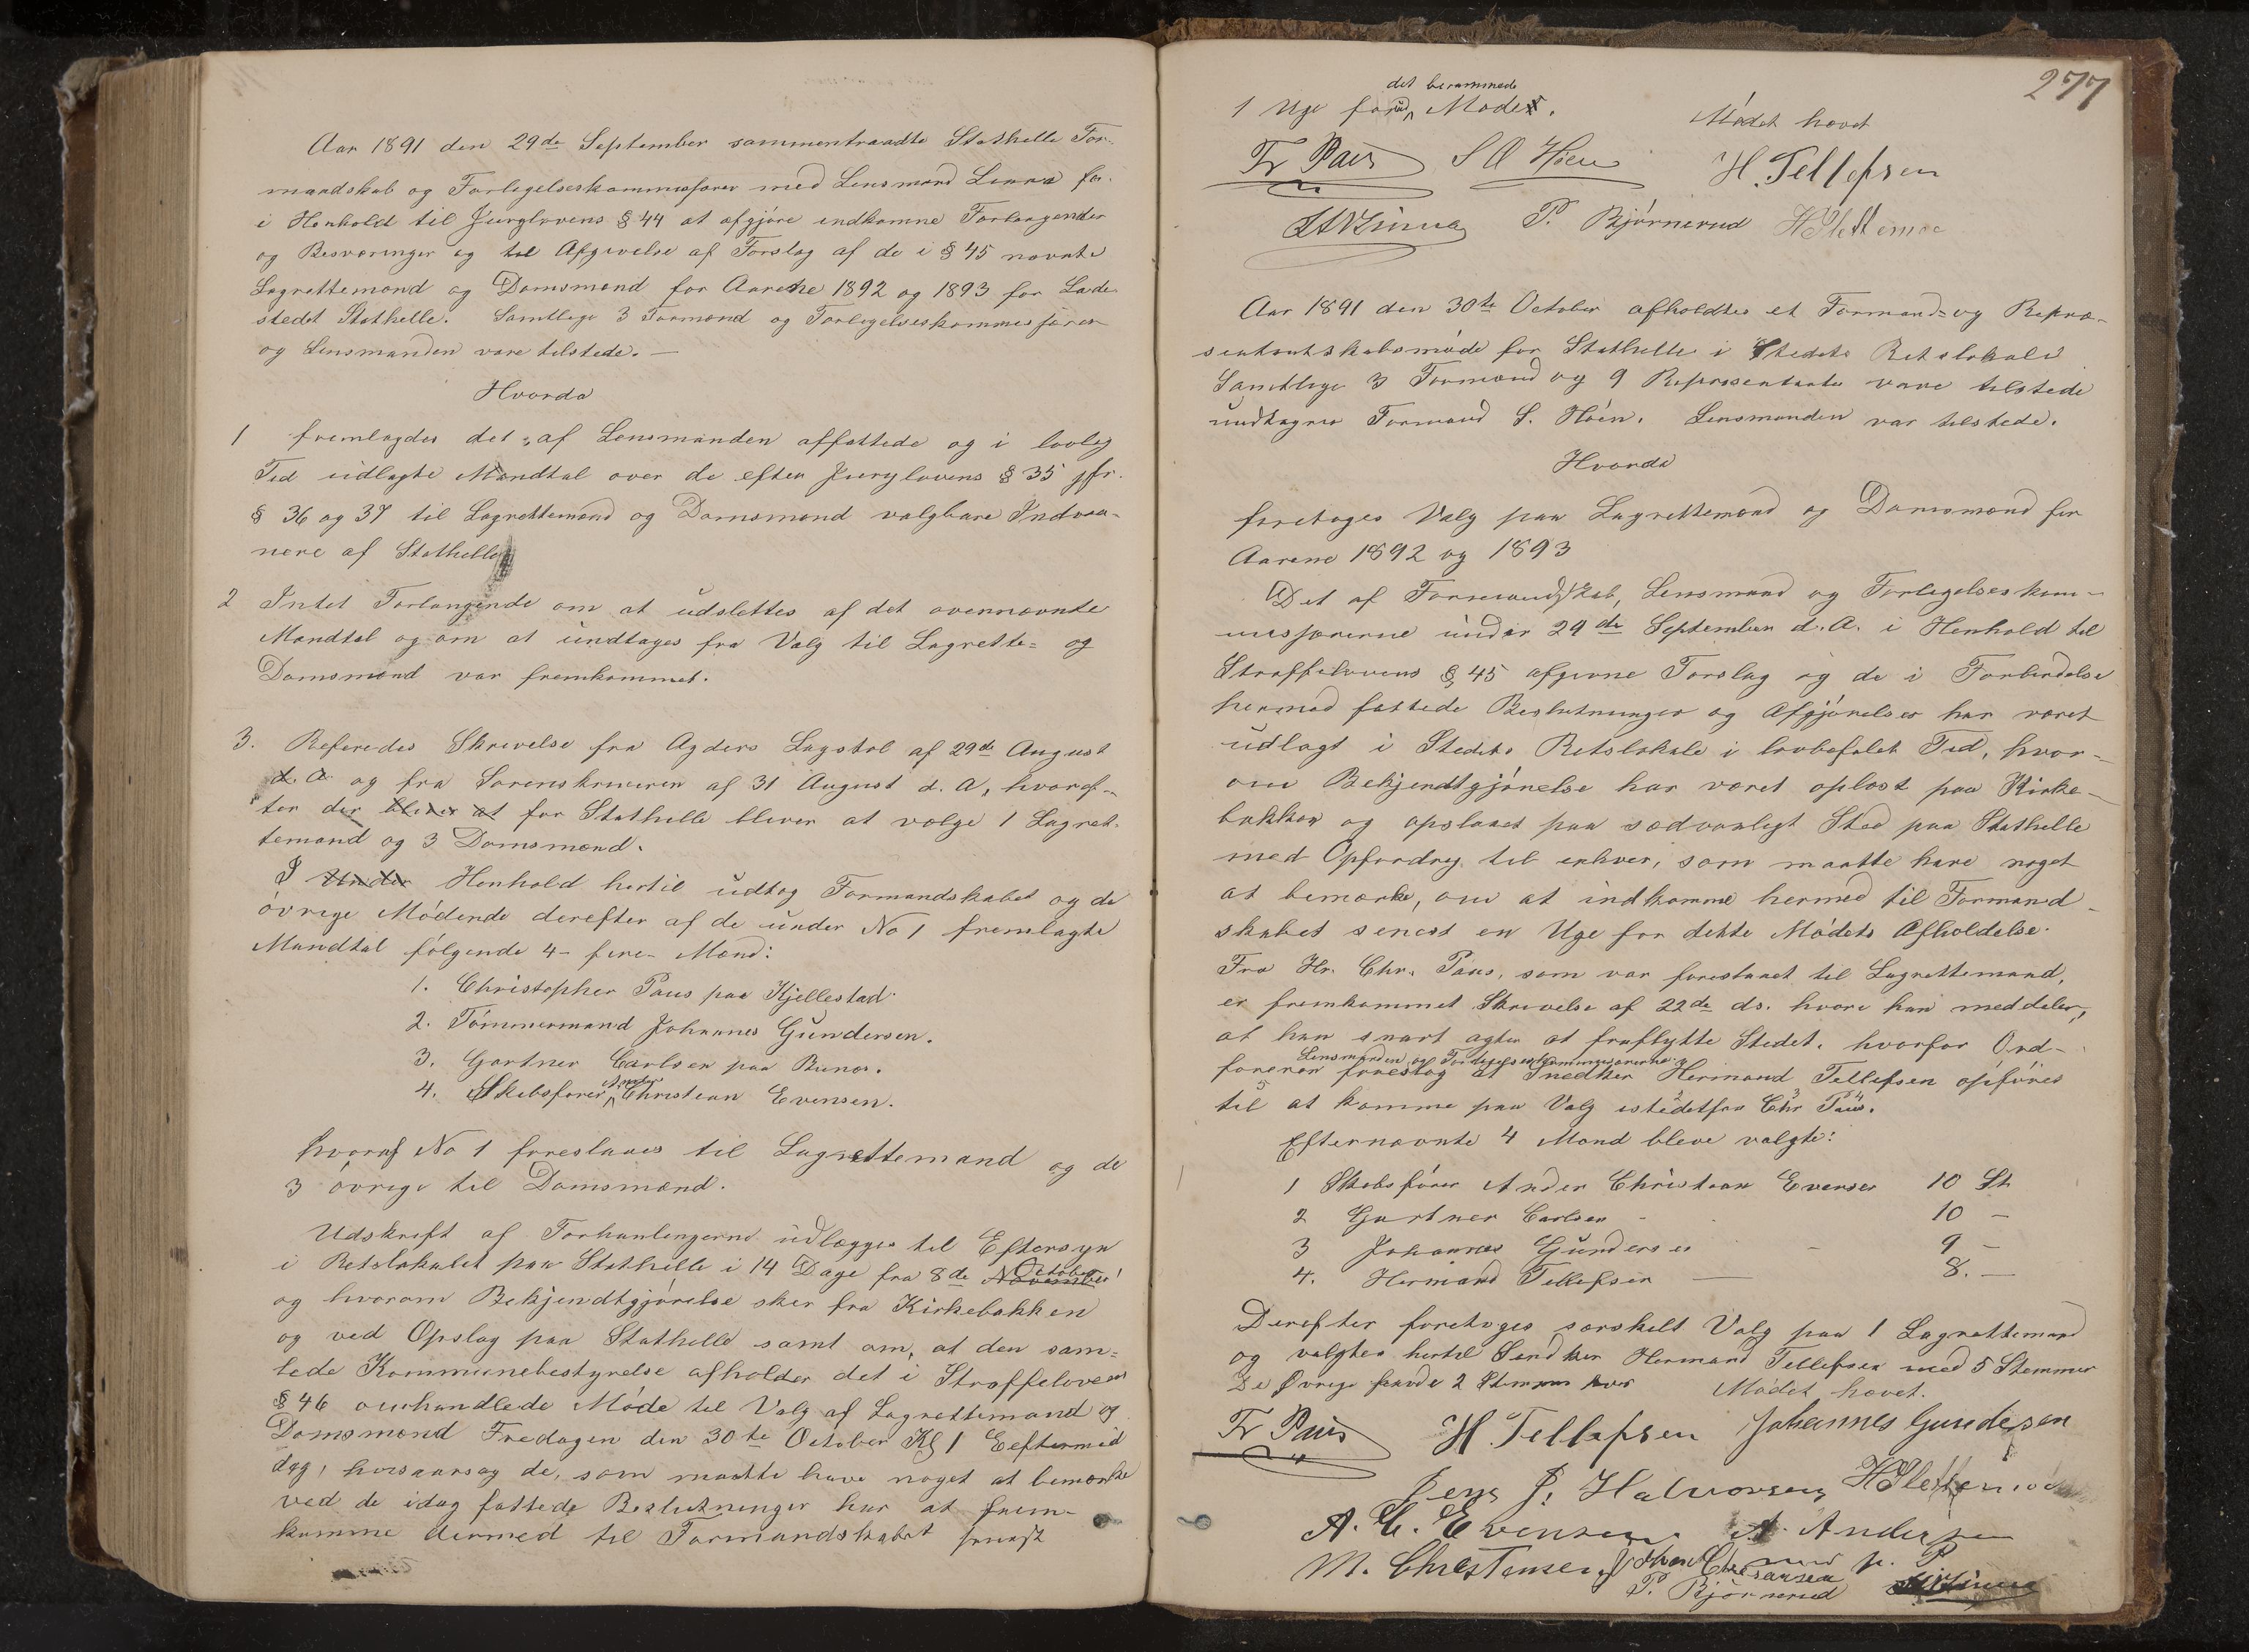 Aar 1891 den 29de September sammentraadte Stathelle For-
mandskab og Forligelseskommissærer med Lensmand Linna for
i Henhold til Jurylovens § 44 at afgjøre indkomne Forlangender
og Besværinger og til Afgivelse af Forslag af de i § 45 nævnte
Lagrettemænd og Domsmænd for Aarene 1892 og 1893 for Lade-
stedet Stathelle. Samtlige 3 Formænd og Forligelseskommissærer
og Lensmanden vare tilstede. —
Hvorda
1 fremlagdes det af Lensmanden affattede og i lovlig
Tid udlagte Mandtal over de efter Jurylovens § 35 jfr.
§ 36 og 37 til Lagrettemænd og Domsmænd valgbare Indvaa-
nere af Stathelle
2 Intet Forlangende om at udslettes af det ovennævnte
Mandtal og om at undtages fra Valg til Lagrette- og
Domsmænd var fremkommet.
3. Referedes Skrivelse fra Agders Lagstol af 29de August
d. A og fra Sorenskriveren af 31 August d. A, hvoref-
ter der bliver at for Stathelle bliver at vælge 1 Lagret-
temand og 3 Domsmænd.
I Under Henhold hertil udtog Formandskabet og de
øvrige Mødende derefter af de under No 1 fremlagte
Mandtal følgende 4 - fire - Mænd:
1. Christopher Paus paa Kjellestad.
2. Tømmermand Johannes Gundersen.
3. Gartner Carlsen paa Runes.
4. Skibsfører Anders Christian Evensen.
hvoraf No 1 foreslaaes til Lagrettemand og de
3 øvrige til Domsmænd.
Udskrift af Forhanlingerne udlægges til Eftersyn
i Retslokalet paa Stathelle i 14 Dage fra 8de November October
og hvorom Bekjendtgjørelse sker fra Kirkebakken
og ved Opslag paa Stathelle samt om, at den sam-
lede Kommunebestyrelse afholder det i Straffeloven
§ 46 omhandlede Møde til Valg af Lagrettemand og
Domsmænd Fredagen den 30te October Kl 1 Eeftermid
dag, hvorsaasag de, som maatte have noget at bemærke
ved de idag fattede Beslutninger har at frem-
komme dermed til Formandskabet senest
277
1 Uge forud det berammede Møde.
Mødet hævet
Fr Paus S O Høen H. Tellefsen
P. Bjørnerud H Slettemoe
Aar 1891 den 30te October afholdtes et Formand- og Repræ-
sentantskabsmøde for Stathelle i Stedets Retslokale
Samtlige 3 Formænd og 9 Repræsentanter vare tilstede
undtagen Formand S. Höen. Lensmanden var tilstede.
Hvorda
foretoges Valg paa Lagrettemænd og Domsmænd for
Aarene 1892 og 1893
Det af Formandskab, Lensmand og Forligelseskom-
missærerne under 29de September d. A. i Henhold til
Straffelovens § 45 afgivne Forslag og de i Forbindelse
hermed fattede Beslutninger og Afgjørelser har været
udlagt i Stedets Retslokale i lovbefalet Tid, hvor-
om Bekjendtgjørelse har været oplæst paa Kirke-
bakken og opslaaet paa sædvanligt Sted paa Stathelle
med Opfordring til enhver, som maatte have noget
at bemærke, om at indkomme hermed til Formand-
skabet senest en Uge før dette Mødets Afholdelse.
Fra Hr. Chr. Paus, som var foreslaaet til Lagrettemand,
er fremkommet Skrivelse af 22de ds. hvori han meddeler,
at han snart agter at fraflytte Stedet, hvorfor Ord-
føreren Lensmanden og Forligelseskommissærerne foreslog at Snedker Hermand Tellefsen opføres
til at komme paa Valg istedetfor Chr Paus.
Efternævnte 4 Mænd bleve valgte:
1 Skibsfører Anders Christian Evensen 10 St
2 Gartner Carlsen - 10 —
3 Johannes Gundersen - 9 —
4. Hermand Tellefsen — 8. —
Derefter foretoges særskilt Valg paa 1 Lagrettemand
og valgtes hertil Snedker Hermand Tellefsen med 5 Stemmer
De Øvrige havde 2 Stemmer hver Mødet hævet.
Fr Paus H. Tellefsen Johannes Gundersen
Jens J. Halvorsen H Slettemoe
A. C. Evensen A. Andersen
M. Christensen Johan Christiansen med p. P
P. Bjørnerud